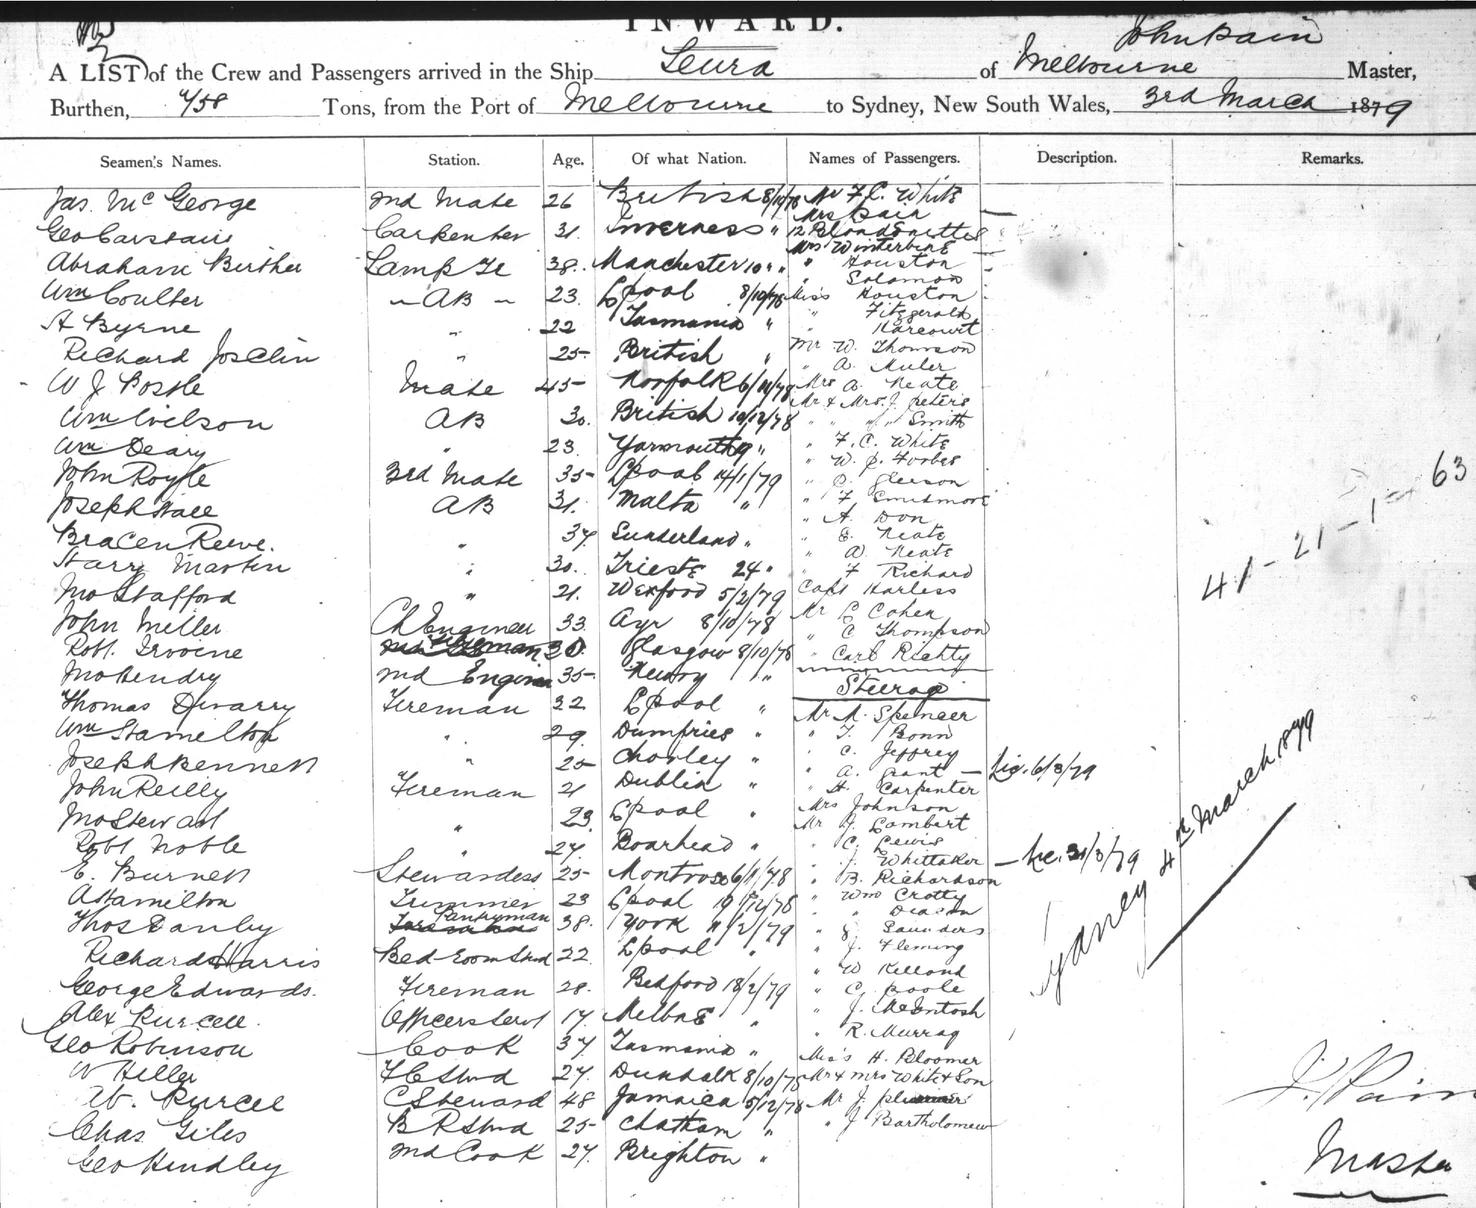 INWARD.
John Pain
A LIST of the Crew and Passengers arrived in the Ship Leura of Melbourne Master,
Burthen, 458 Tons, from the Port of Melbourne to Sydney, New South Wales, 3rd March 1879
Seamen's Names. Station. Age. Of what Nation. Names of Passengers. Description. Remarks.
Jas. McGeorge 2nd Mate 26 British 8/10/78 Mr F. C. White
Mrs Pain —
Geo Carstairs Carpenter 31 Inverness " 12 Blondenettes
Mrs Winterbine
Abraham Bircher Lamp Tr 38. Manchester 10 " " " Houston
" Solomon
Wm Coulter AB 23. Lpool 8/10/78 Miss Houston
" Fitzgerald
A Byrne " 22 Tasmania " " Harcourt
Richard Joselin " 25 British " Mr W. Thomson
" A. Muler
W J Postle Mate 45 Norfolk 6/11/78 Mrs A. Neate
Mr & Mrs. J Peters
Wm Wilson AB 30. British 10/12/78 " " " Smith
Wm Deary " 23. Yarmouth 19 " " F. C. White
" W. J. Forbes
John Royle 3rd Mate 35 Lpool 14/1/79 " Gleeson
Joseph Hall AB 31. Malta " " F Smidmore
" A. Don
Bracen Reeve. " 37 Sunderland " " E. Neate
" A. Neate
Harry Martin " 30. Trieste 24 " " F Richard
Mo Stafford " 21. Wexford 5/2/79 Capt Harless
John Miller Ch Engineer 33. Ayr 8/10/78 Mr L Cohen
" C Thompson
Robt. Irvine Fireman 30. Glasgow 8/10/78 " Carl Richty
Mo Hendry 2nd Engineer 35 Newry "
Steerage
Thomas Divarry Fireman 22 Lpool " Mr M. Spencer
Wm Hamilton " 29. Dumfries " " T. Bonn
" C. Jeffrey
Joseph Bennett " 25 Chorley " " A. Grant — Lic. 6/3/79
John Reilly Fireman 21 Dublin " " H. Carpenter
Mrs Johnson
Mo Stewart " 23. Lpool " Mr J. Lambert
Robt Noble " 27. Boarhead " " C. Lewis
" J. Whittaker — Lic. 31/3/79
E. Burnett Stewardess 25 Montrose 6/11/78 " B. Richardson
A Hamilton Trimmer 23 Lpool 19/12/78 " Wm Crotty
" " Deacon
Thos Danby Pantryman 38. York 11/2/79 " J. Saunders
Richard Harris Bed-room Stwd 22. Lpool " " J. Fleming
" W Kelland
George Edwards. Fireman 28. Bedford 18/2/79 " C. Poole
Alex Purcell. Officers Servt 17 Melbne " " J. McIntosh
" R. Murray
Geo Robinson Cook 37 Tasmania " Miss H. Bloomer
W Hiller F C Stwd 27. Dundalk 8/10/78 Mr & Mrs White & Son
W. Purcell C Steward 48 Jamaica 5/12/78 Mr J. Plummer
Chas Giles B R Stwd 25 Chatham " " J Bartholomew
Geo Hindley 2nd Cook 27. Brighton "
41-21-1- 63
Sydney 4th March 1879
J. Pain
Master